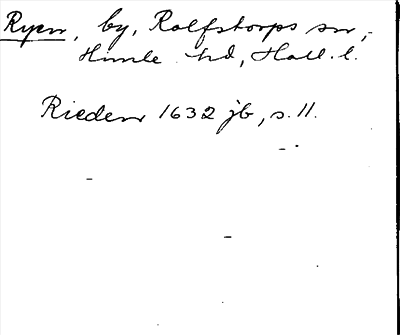 Ryen, by, Rolfstorps sn,
Himle hd, Hall. l.
Rieden 1632 jb, s. 11.